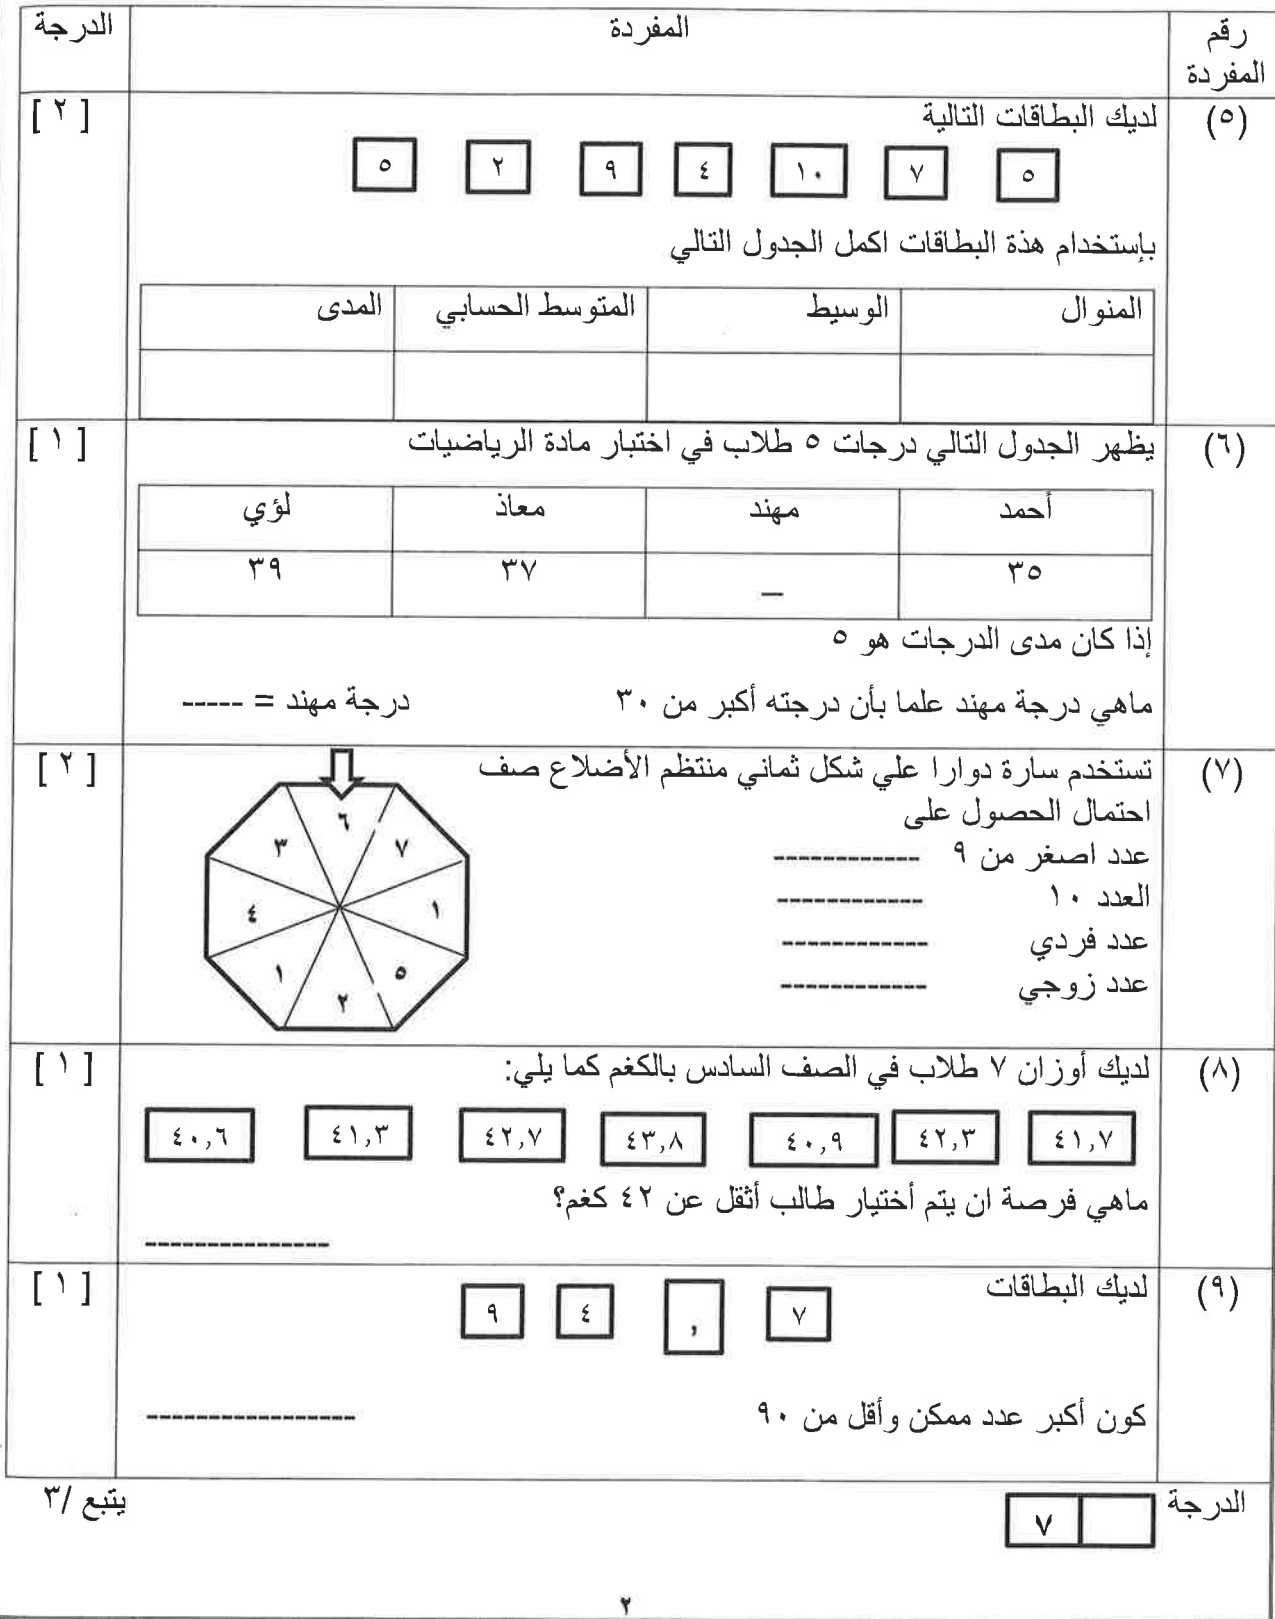 رقم المفردة	المفردة	الدرجة
(٥)	لديك البطاقات التالية	[ ٢ ]
٥ ٧ ١٠ ٤ ٩ ٢ ٥
بإستخدام هذة البطاقات اكمل الجدول التالي
المنوال	الوسيط	المتوسط الحسابي	المدى
(٦)	يظهر الجدول التالي درجات ٥ طلاب في اختبار مادة الرياضيات	[ ١ ]
أحمد	مهند	معاذ	لؤي
٣٥	_	٣٧	٣٩
إذا كان مدى الدرجات هو ٥
ماهي درجة مهند علما بأن درجته أكبر من ٣٠	درجة مهند = -----
(٧)	تستخدم سارة دوارا علي شكل ثماني منتظم الأضلاع صف	[ ٢ ]
احتمال الحصول على
عدد اصغر من ٩ ------------
العدد ١٠ ------------
عدد فردي ------------
عدد زوجي ------------
٦
٧
١
٥
٢
١
٤
٣
(٨)	لديك أوزان ٧ طلاب في الصف السادس بالكغم كما يلي:	[ ١ ]
٤١,٧ ٤٢,٣ ٤٠,٩ ٤٣,٨ ٤٢,٧ ٤١,٣ ٤٠,٦
ماهي فرصة ان يتم أختيار طالب أثقل عن ٤٢ كغم؟
---------------
(٩)	لديك البطاقات	[ ١ ]
٧ , ٤ ٩
كون أكبر عدد ممكن وأقل من ٩٠ -----------------
الدرجة	٧	يتبع /٣
٢